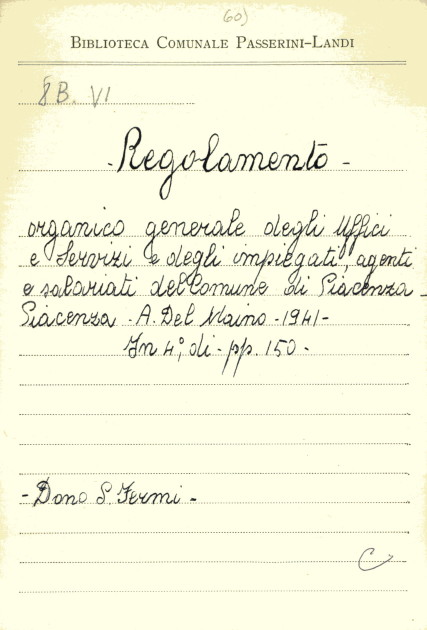 60)
BIBLIOTECA COMUNALE PASSERINI-LANDI
8 B. VI
- Regolamento -
organico generale degli Uffici
e Servizi e degli impiegati, agenti
e salariati del Comune di Piacenza -
Piacenza - A. Del Maino - 1941 -
In 4°, di - pp. 150 -
- Dono S. Fermi -
C